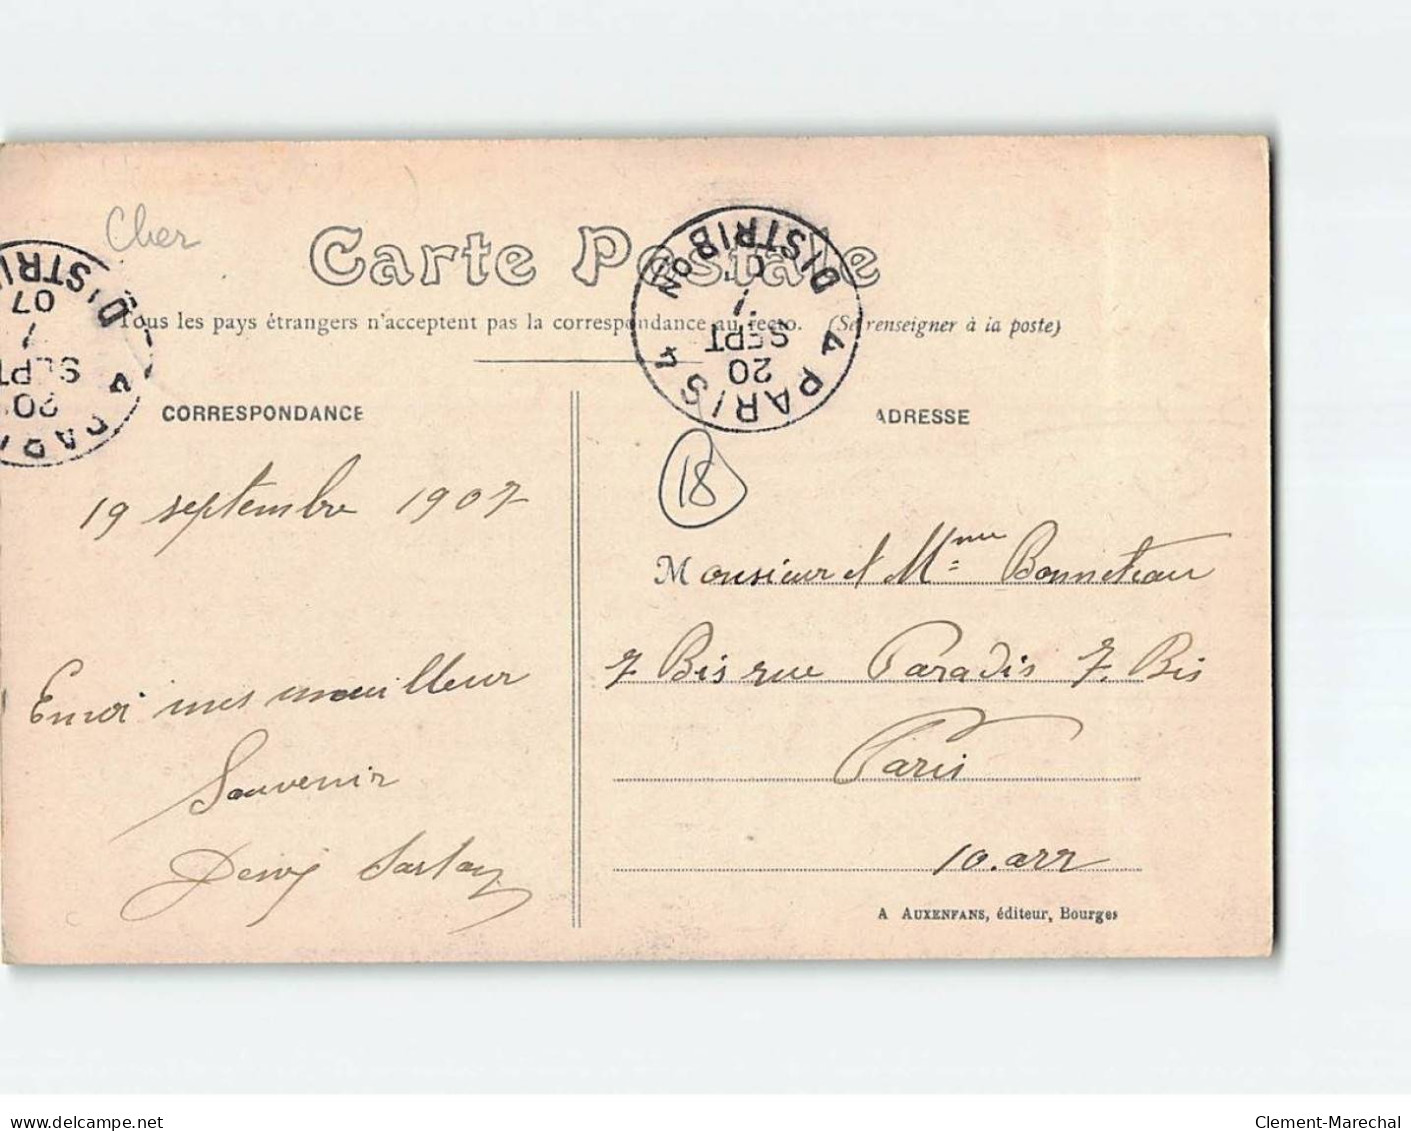 Cher
Carte Postale
Tous les pays étrangers n'acceptent pas la correspondance au recto. (Se renseigner à la poste)
PARIS 4 DISTRIBON
20 SEPT 07
PARIS 4 DISTRIBON
20 SEPT
CORRESPONDANCE
19 septembre 1907
Envoi mes meuilleur
Souvenir
ADRESSE
18
Monsieur et Mme Bonneteau
7 Bis rue Paradis 7. Bis
Paris
10. arr
A AUXENFANS, éditeur, Bourges
www.delcampe.net
Clement-Marechal